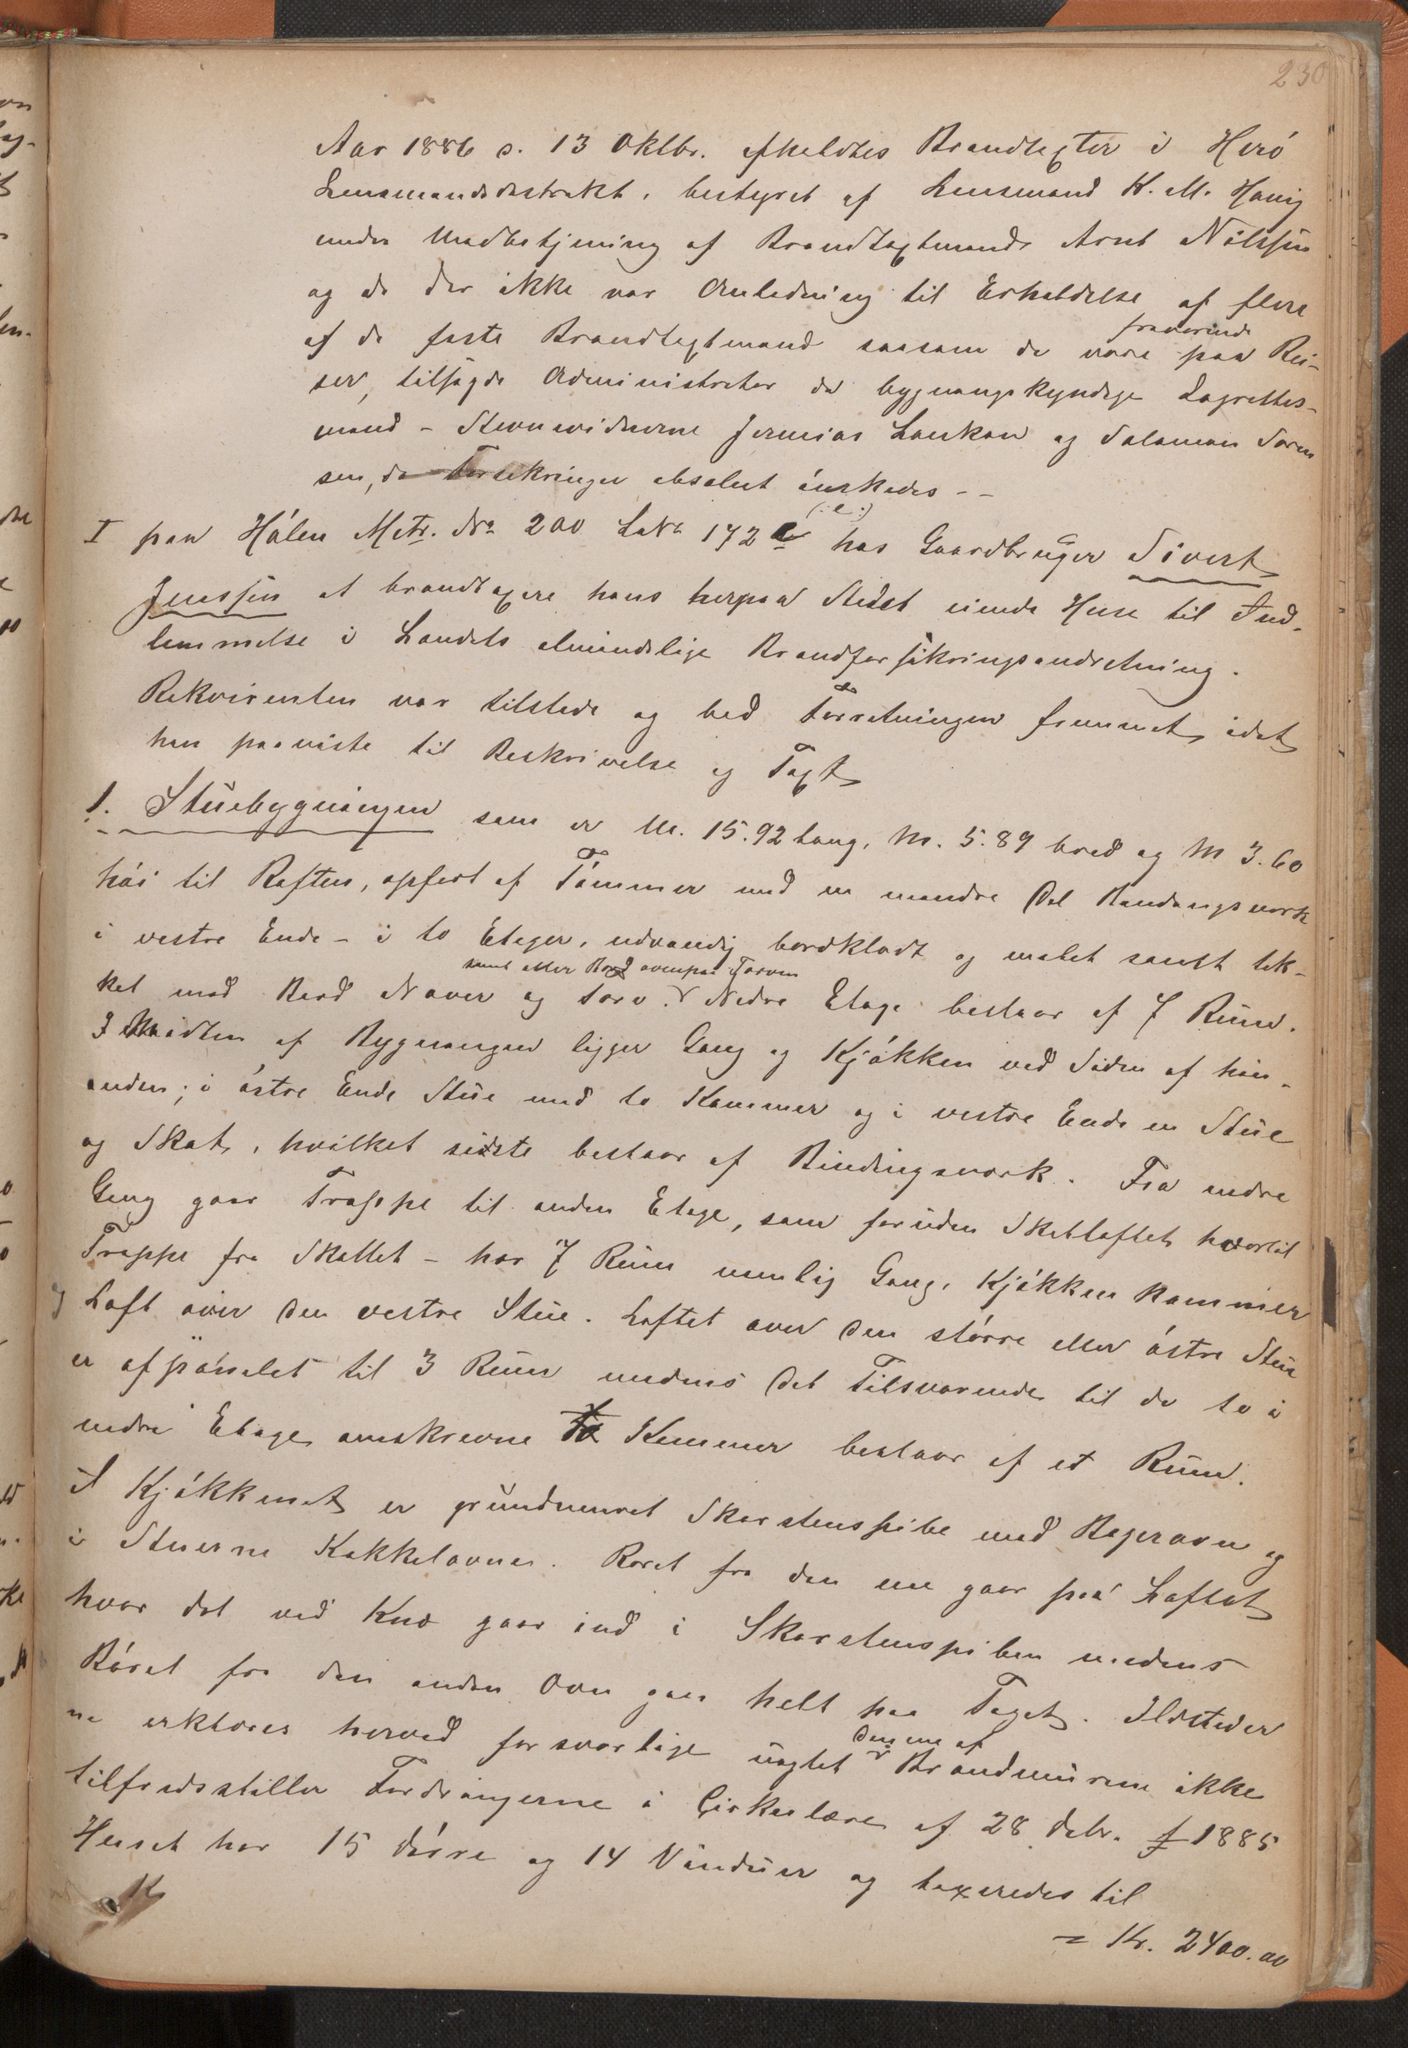 230
Aar 1886 d. 13 Oktbr. afholdtes Brandtaxter i Herö
Lensmandsdistrikt, bestyret af Lensmand K. M. Havig
under Medbetjening af Brandtaxtmand Arnt Nilssen
og da der ikke var Anledning til Erholdelse af flere
af de faste Brandtaxtmænd saasom de vare fraværende paa Rei-
ser, tilsagde Administrator de bygningskyndige Lagrettes-
mænd - Stevnevidnerne Jermias Lauken og Salamon Soren
sen, da Forsikringer absolut önskedes - -
I paa Hölen Mctr. No 200 LNo 172 e (: e :) har Gaardbruger Sivert
Jenssen at brandtaxere hans herpaa Stedet eiende Huse til Ind-
lemmelse i Landets almindelige Brandforsikringsindretning.
Rekvirenten var tilstede og bad Forretningen fremmet, idet
han paaviste til Beskrivelse og Taxt
1. Stuebygningen som er M. 15.92 lang, M. 5.89 bred og M 3.60
höi til Raften, opfört af Tömmer med en mindre Del Bindingsverk
i vestre Ende - i to Etager, udvendig bordklædt og malet samt tæk-
samt atter Bord ovenpaa Torven
ket med Bord Næver og torv. Nedre Etage bestaar af 7 Rum.
I Midten af Bygningen ligger Gang og Kjökken ved Siden af hin-
anden; i östre Ende Stue med to Kammer og i vestre Ende en Stue
og Skot, hvilket sidste bestaar af Bindingsverk. Fra nedre
Gang gaar Trappe til anden Etage, som foruden Skotloftet hvortil
Trappe fra Skottet - har 7 Rum nemlig Gang, Kjökken Kammer
og Loft over den vestre Stue. Loftet over den större eller östre Stue
er afpanelet til 3 Rum medens det Tilsvarende til de to i
nedre Etage omskrevne to Kammer bestaar af et Rum.
I Kjökkenet er grundmuret Skorstenspibe med Bagerovn og
i Stuerne Kakkelovner. Röret fra den ene gaar paa Loftet
hvor det ved Knæ gaar ind i Skorstenspiben medens
Röret fra den anden Ovn gaar helt paa Taget. Ildsteder
ne erklæres herved forsvarlige uagtet den ene af Brandmurene ikke
tilfredsstiller Fordringerne i Cirkulære af 28 Debr. f 1885
Huset har 15 Döre og 14 Vinduer og taxeredes til
= Kr. 2400.00